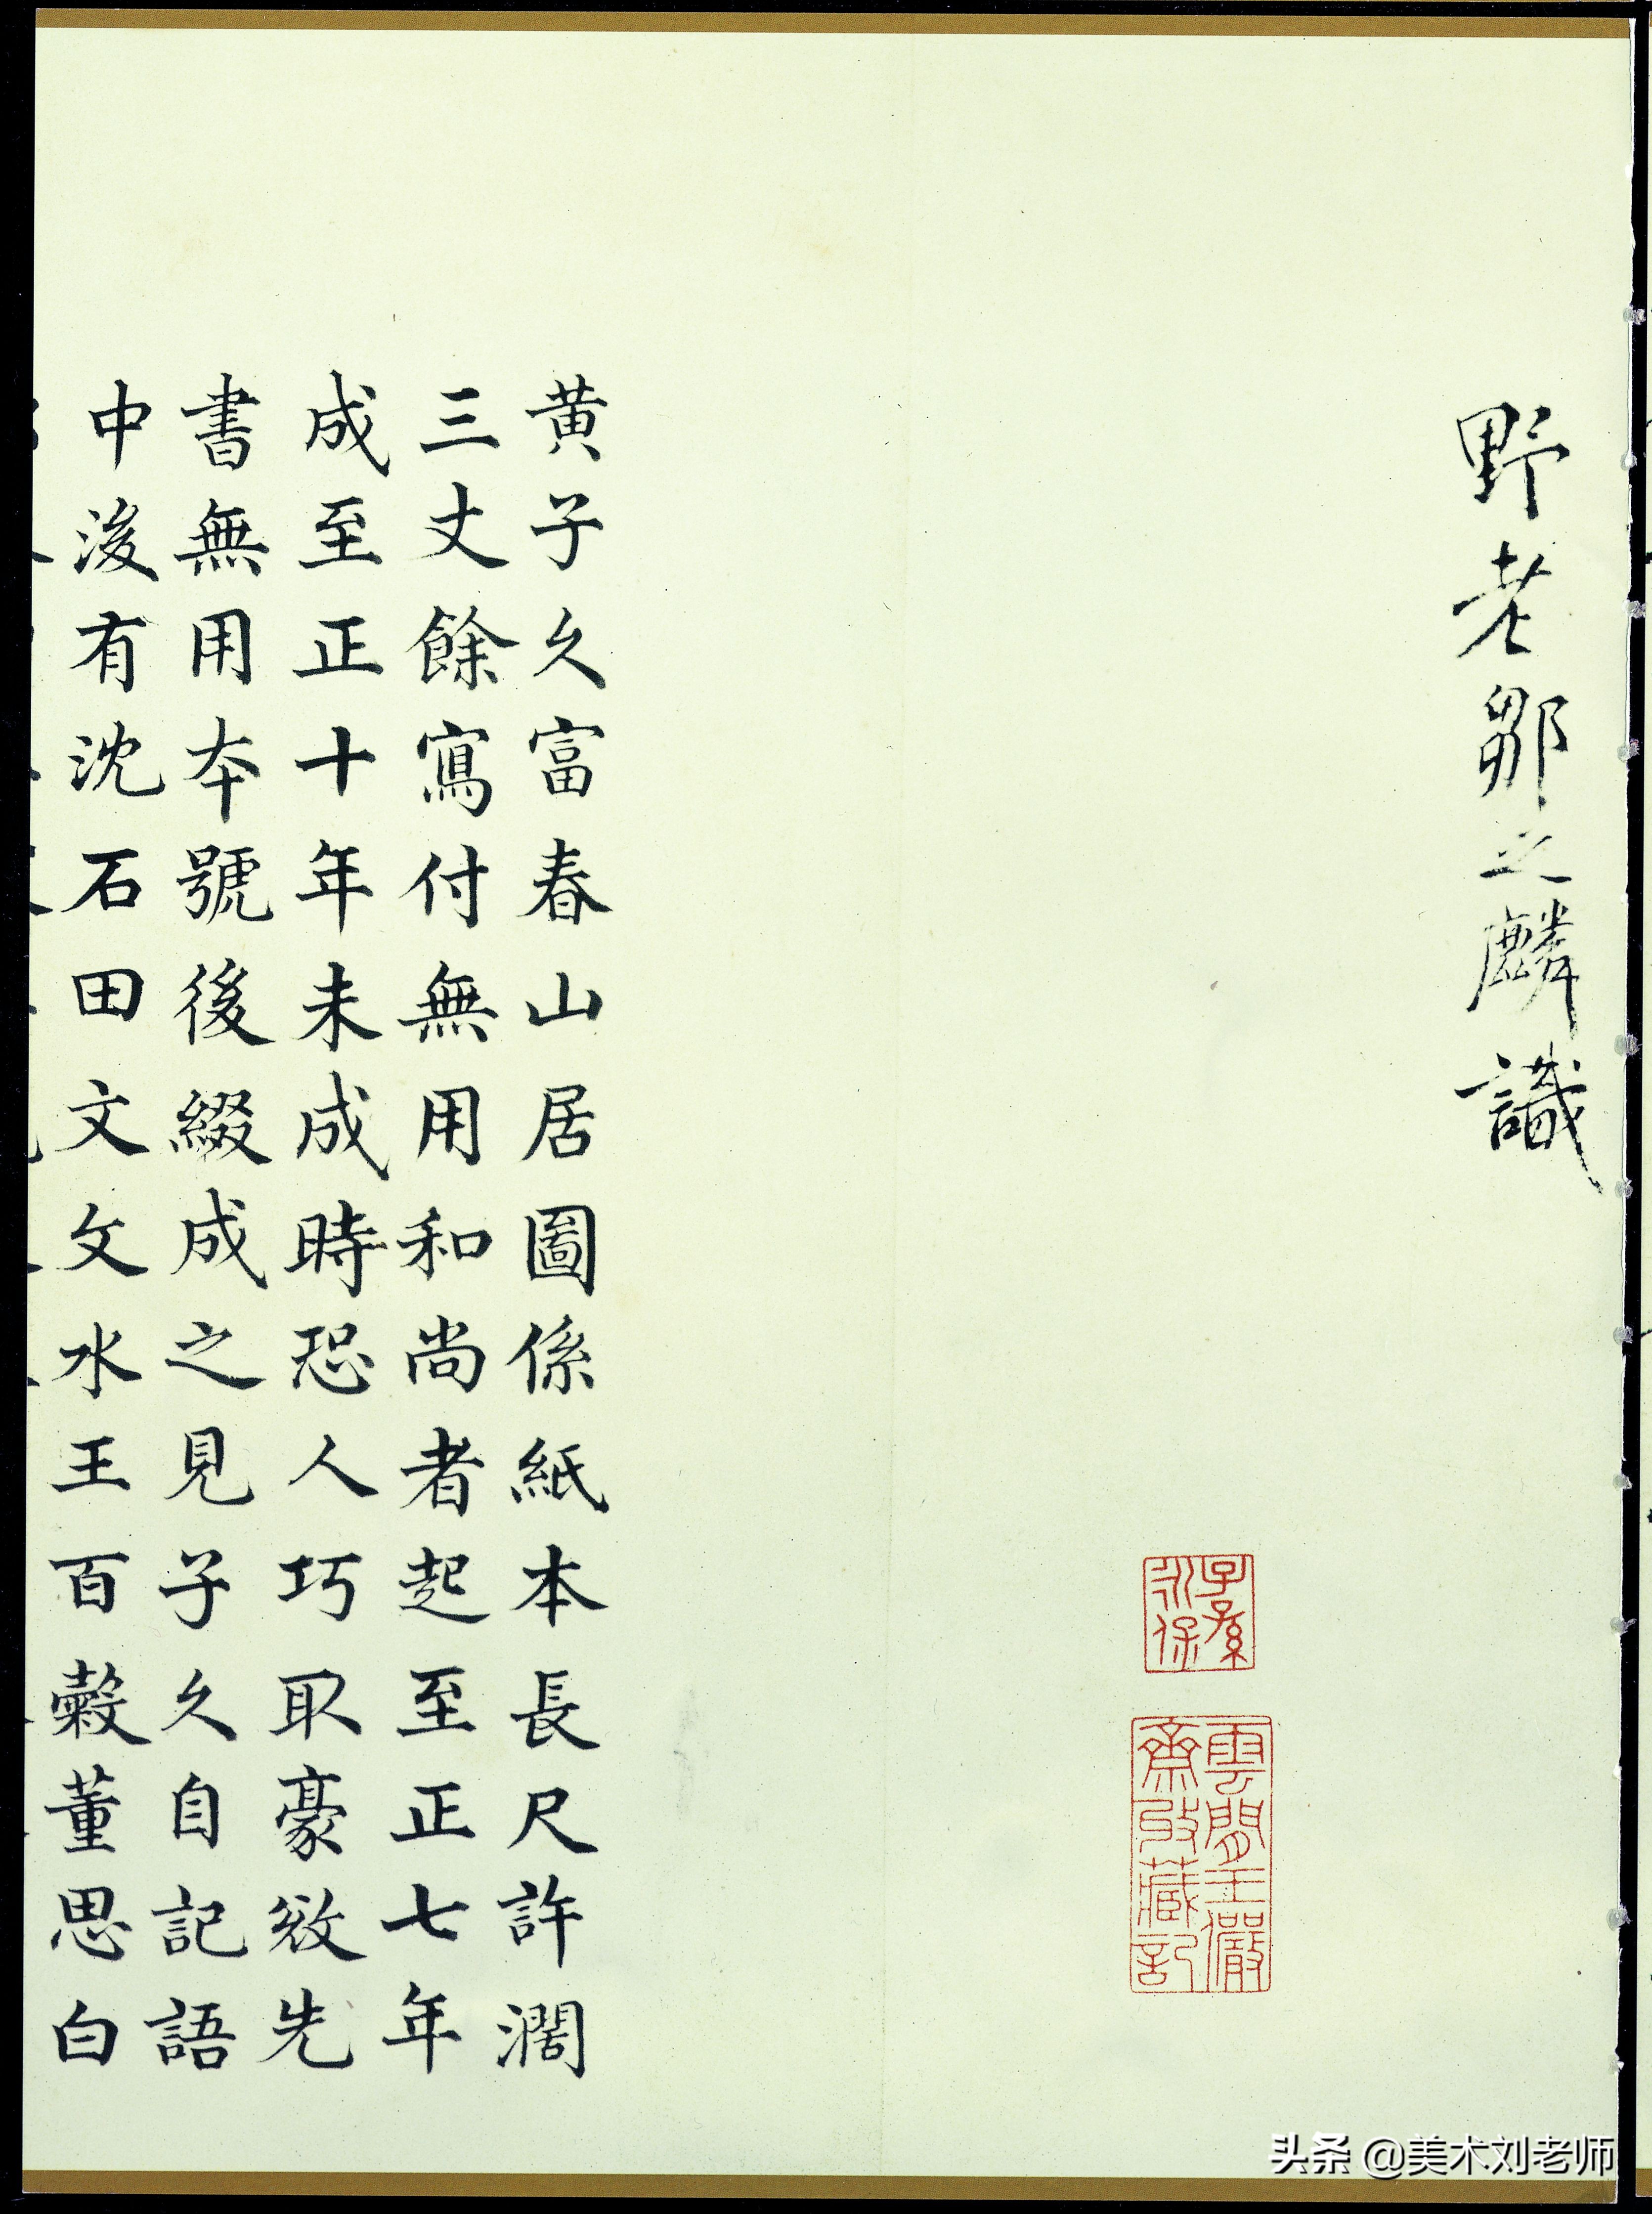 野老鄒之麟識
子孫
永保
雲間王儼
齋收藏記
黄子久富春山居圖係紙本長尺許濶
三丈餘寫付無用和尚者起至正七年
成至正十年未成時恐人巧取豪敚先
書無用本號後綴成之見子久自記語
中後有沈石田文文水王百穀董思白
头条 @美术刘老师